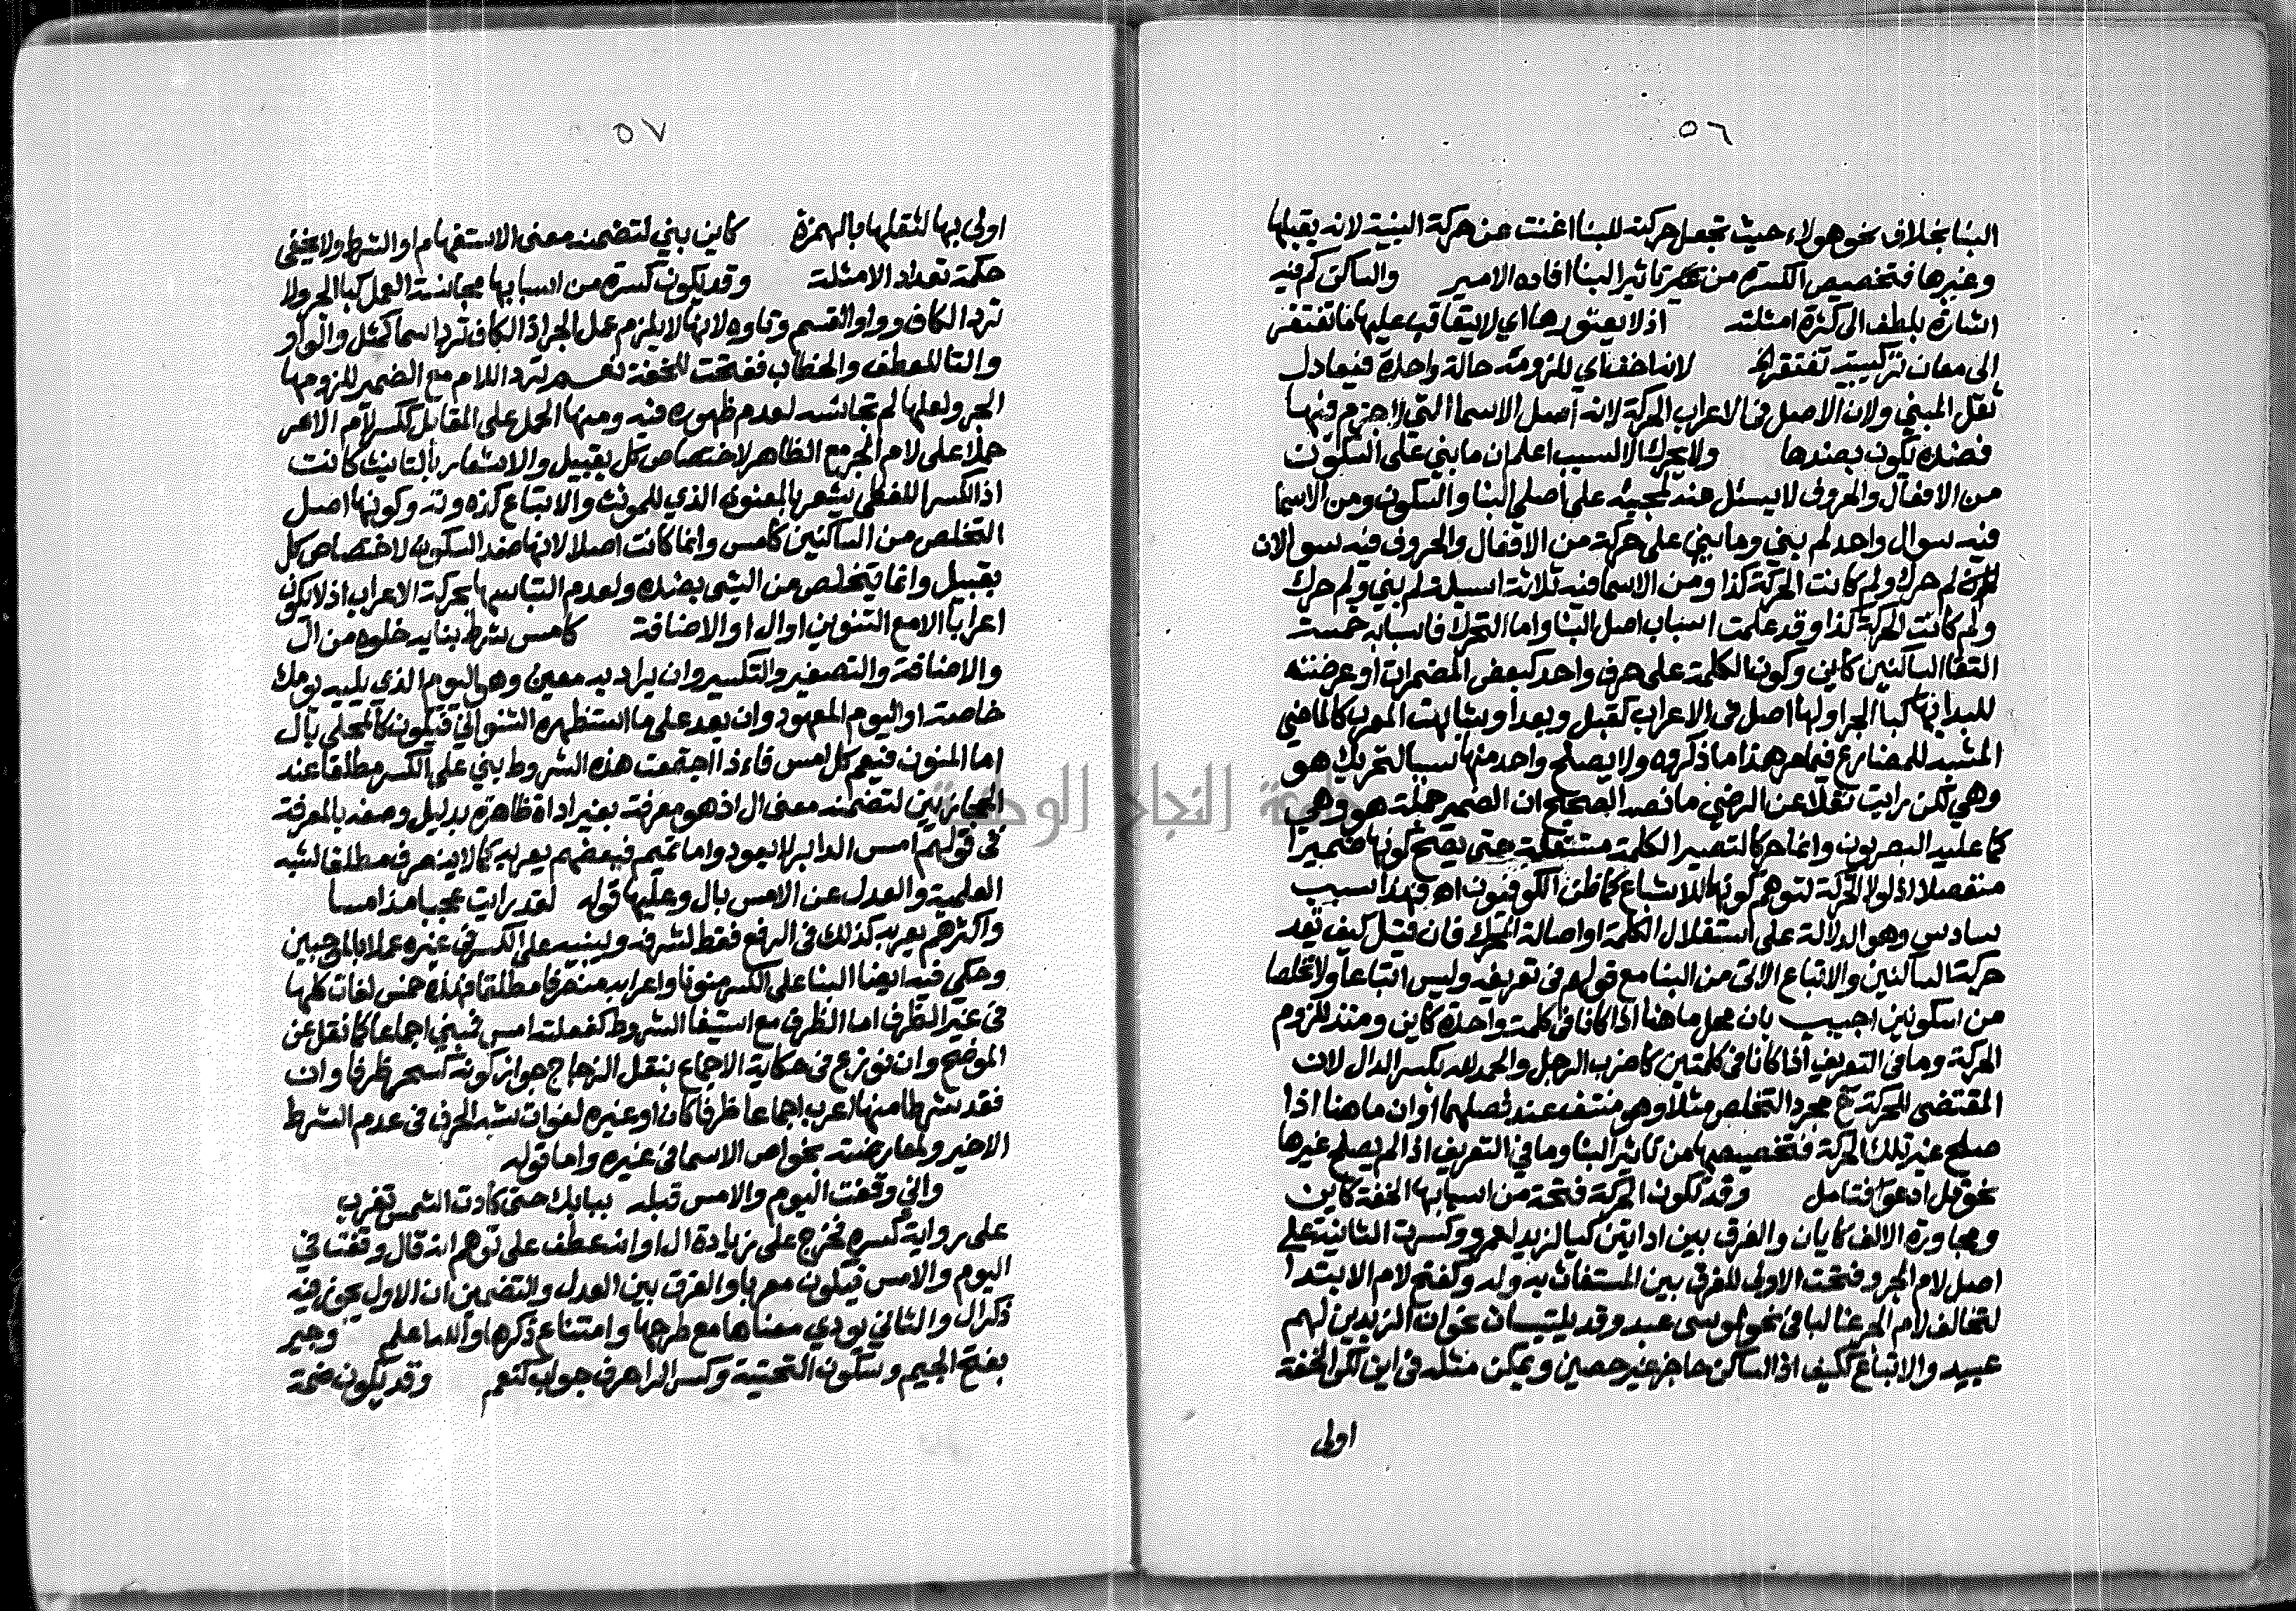 ٥٦
البنا بخلاف نحو هولاء حيث تجعل حركته للبنا اغنت عن حركة البنية لانه يقبلها
وغيرها فتخصيص الكسرة من تاثير البنا افاده الامير والساكن كم فيه
اشارة بلطف الى كثرة امثلته اذ لا يعتورها اي لا يتعاقب عليها ما تفتقر
الى معان تركيبية تفتقر لانه اخف اي للزومه حالة واحدة فيعادل
ثقل المبني ولان الاصل في الاعراب الحركة لانه اصل الاسما التي لا جزم فيها
فضده يكون بضدها ولا يحرك الا لسبب اعلم ان ما بني على السكون
من الافعال والحروف لا يسئل عنه لمجيئه على اصلي البنا والسكون ومن الاسما
فيه سوال واحد لم بني وما بني على حركة من الافعال والحروف فيه سوالان
لم حرك ولم كانت الحركة كذا ومن الاسما فيه ثلاثة اسيلة لم بني ولم حرك
ولم كانت الحركة كذا وقد علمت اسباب اصل البنا واما التحرك فاسبابه خمسة
التقا الساكنين كاين وكون الكلمة على حرف واحد كبعض المضمرات او عرضته
للبدا بها كبا الجر او لها اصل في الاعراب كقبل وبعد او شابهت المعرب كالماضي
المشبه للمضارع فيما مر هذا ما ذكروه ولا يصلح واحد منها سببا لتحريك هو
وهي لكن رايت نقلا عن الرضي ما نصه الصحيح ان الضمير جملة هو وهي
كما عليه البصريون وانما حركا لتصير الكلمة مستقلة حتى يصح كونها ضميرا
منفصلا اذ لولا الحركة لتوهم كونها للاشباع كما ظن الكوفيون اه فهذا سبب
سادس وهو الدلالة على استقلال الكلمة او اصالة التحرك فان قيل كيف تعد
حركة الساكنين والاتباع الاتي من البنا مع قولهم في تعريفه وليس اتباعا ولا تخلصا
من سكونين اجيب بان محل ما هنا اذا كانا في كلمة واحدة كاين ومنذ للزوم
الحركة وما في التعريف اذا كانا في كلمتين كاضرب الرجل والحمد لله بكسر الدال لان
المقتضى للحركة ح مجرد التخلص مثلا وهو منتف عند فصلهما او ان ما هنا اذا
صلح غير تلك الحركة فتخصيصها من تاثير البنا وما في التعريف اذا لم يصلح غيرها
نحو قل ادعوا فتامل وقد تكون الحركة فتحة من اسبابها الخفة كاين
ومجاورة الالف كايان والفرق بين اداتين كيا لزيد لعمرو وكسرت الثانية على
اصل لام الجر وفتحت الاولى للفرق بين المستغاث به وله وكفتح لام الابتدا
لتخالف لام الجر غالبا في نحو لموسى عبد وقد يلتبسان نحو ان الزيدين لهم
عبيد والاتباع ككيف اذ الساكن حاجز غير حصين ويمكن مثله في اين لكن الخفة
اولى
٥٧
اولى بها لثقلها بالهمزة كاين بني لتضمنه معنى الاستفهام او الشرط ولا يخفى
حكمة تعداد الامثلة وقد يكون كسرة من اسبابها مجانسة العمل كبا الجر ولا
ترد الكاف وواو القسم وتاوه لانها لا يلزم عمل الجر اذ الكاف ترد اسما كمثل والواو
والتا للعطف والخطاب ففتحت للخفة نعم ترد اللام مع الضمير للزومها
الجر ولعلها لم تجانسه لعدم ظهوره فيه ومنها الحمل على المقابل ككسر لام الامر
حملا على لام الجر مع الظاهر لاختصاص كل بقبيل والاشعار بالتانيث كانت
اذ الكسر اللفظي يشعر بالمعنوي الذي للمونث والاتباع كذه وته وكونها اصل
التخلص من الساكنين كامس وانما كانت اصلا لانها ضد السكون لاختصاص كل
بقبيل وانما يتخلص من الشي بضده ولعدم التباسها بحركة الاعراب اذ لا يكون
اعرابا الا مع التنوين او ال او الاضافة كامس شرط بنايه خلوه من ال
والاضافة والتصغير والتكسير وان يراد به معين وهو اليوم الذي يليه يومك
خاصة او اليوم المعهود وان بعد على ما استظهره الشنواني فيكون كالمحلى بال
اما المنون فيعم كل امس فاذا اجتمعت هذه الشروط بني على الكسر مطلقا عند
الحجازيين لتضمنه معنى ال اذ هو معرفة بغير اداة ظاهرة بدليل وصفه بالمعرفة
في قولهم امس الدابر لا يعود واما تميم فبعضهم يعربه كما لا ينصرف مطلقا لشبه
العلمية والعدل عن الامس بال وعليها قوله لقد رايت عجبا مذ امسا
واكثرهم يعربه كذلك في الرفع فقط لشرفه ويبنيه على الكسر في غيره عملا بالموجبين
وحكي فيه ايضا البنا على الكسر منونا واعرابه منصرفا مطلقا فهذه خمس لغات كلها
في غير الظرف اما الظرف مع استيفا الشروط كفعلته امس فبني اجماعا كما نقل عن
الموضح وان نوزع في حكاية الاجماع بنقل الزجاج جواز كونه كسحر ظرفا وان
فقد شرطا منها اعرب اجماعا ظرفا كان او غيره لفوات شبه الحرف في عدم الشرط
الاخير ولمعارضته بخواص الاسما في غيره واما قوله
واني وقفت اليوم والامس قبله ببابك حتى كادت الشمس تغرب
على رواية كسره فخرج على زيادة ال او انه عطف على توهم انه قال وقفت في
اليوم والامس فيكون معربا والفرق بين العدل والتضمين ان الاول يجوز فيه
ذكر ال والثاني يودي معناها مع طرحها وامتناع ذكرها والله اعلم وجير
بفتح الجيم وسكون التحتية وكسر الرا حرف جواب كنعم وقد يكون ضمة